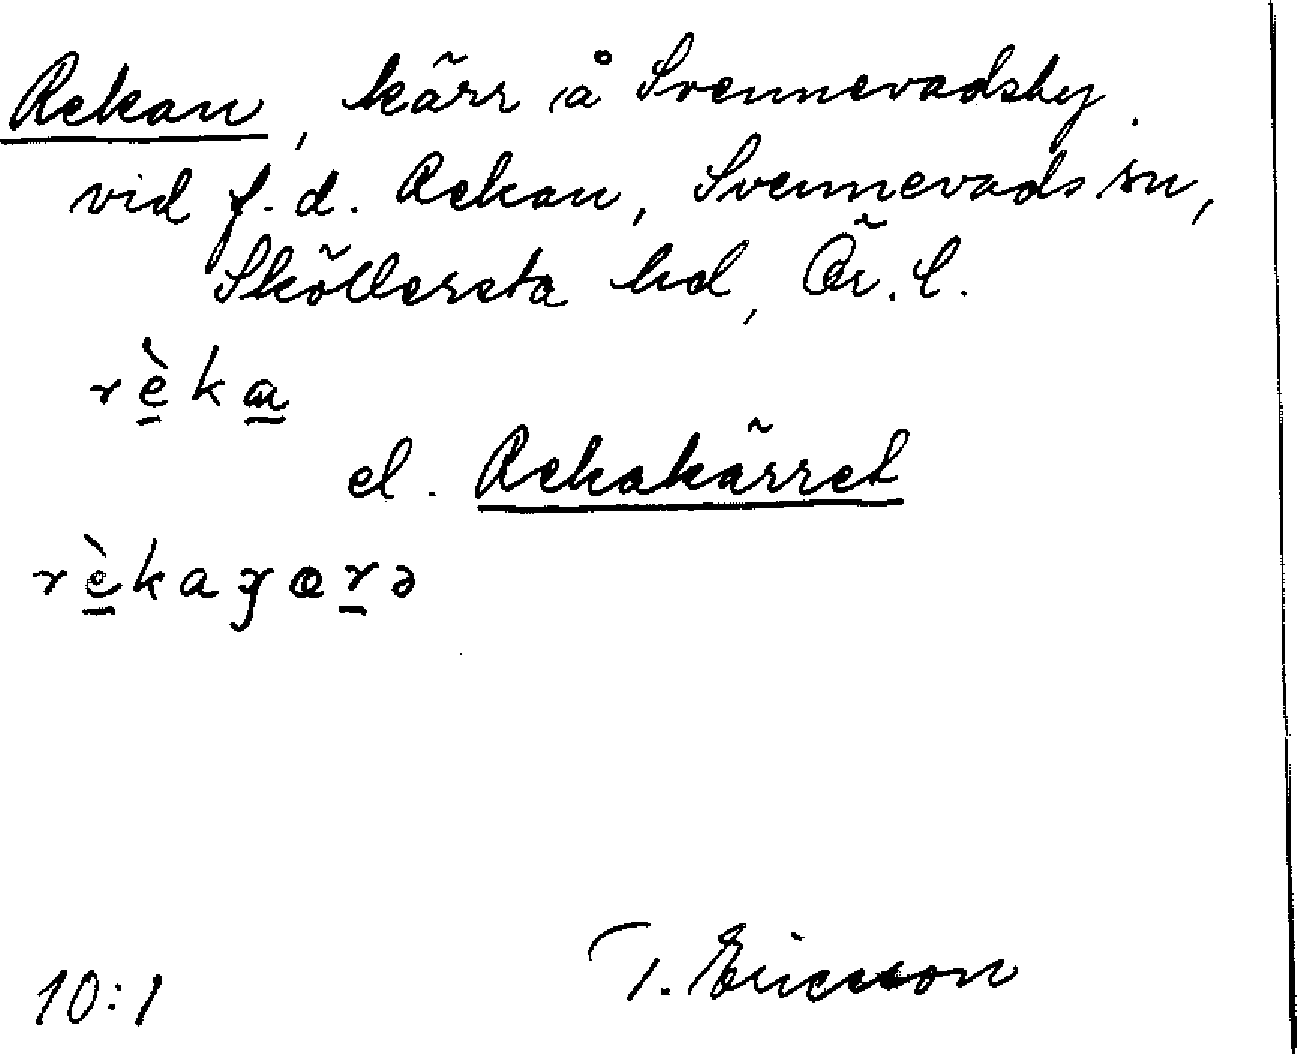 Rekan, kärr å Svennevadsby.
vid f.d. Rekan, Svennevads sn,
Sköllersta hd, Ör. l.
rèka
el. Rekakärret
rèkaɟærə
10:1 T. Ericsson